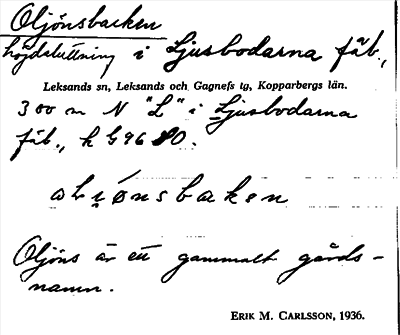 Oljönsbacken
höjdsluttning i Ljusbodarna fäb.,
Leksands sn, Leksands och Gagnefs tg, Kopparbergs län.
300 m N "L" i Ljusbodarna
fäb., k G9680.
Oljöns är ett gammalt gårds-
namn.
ERIK M. CARLSSON, 1936.